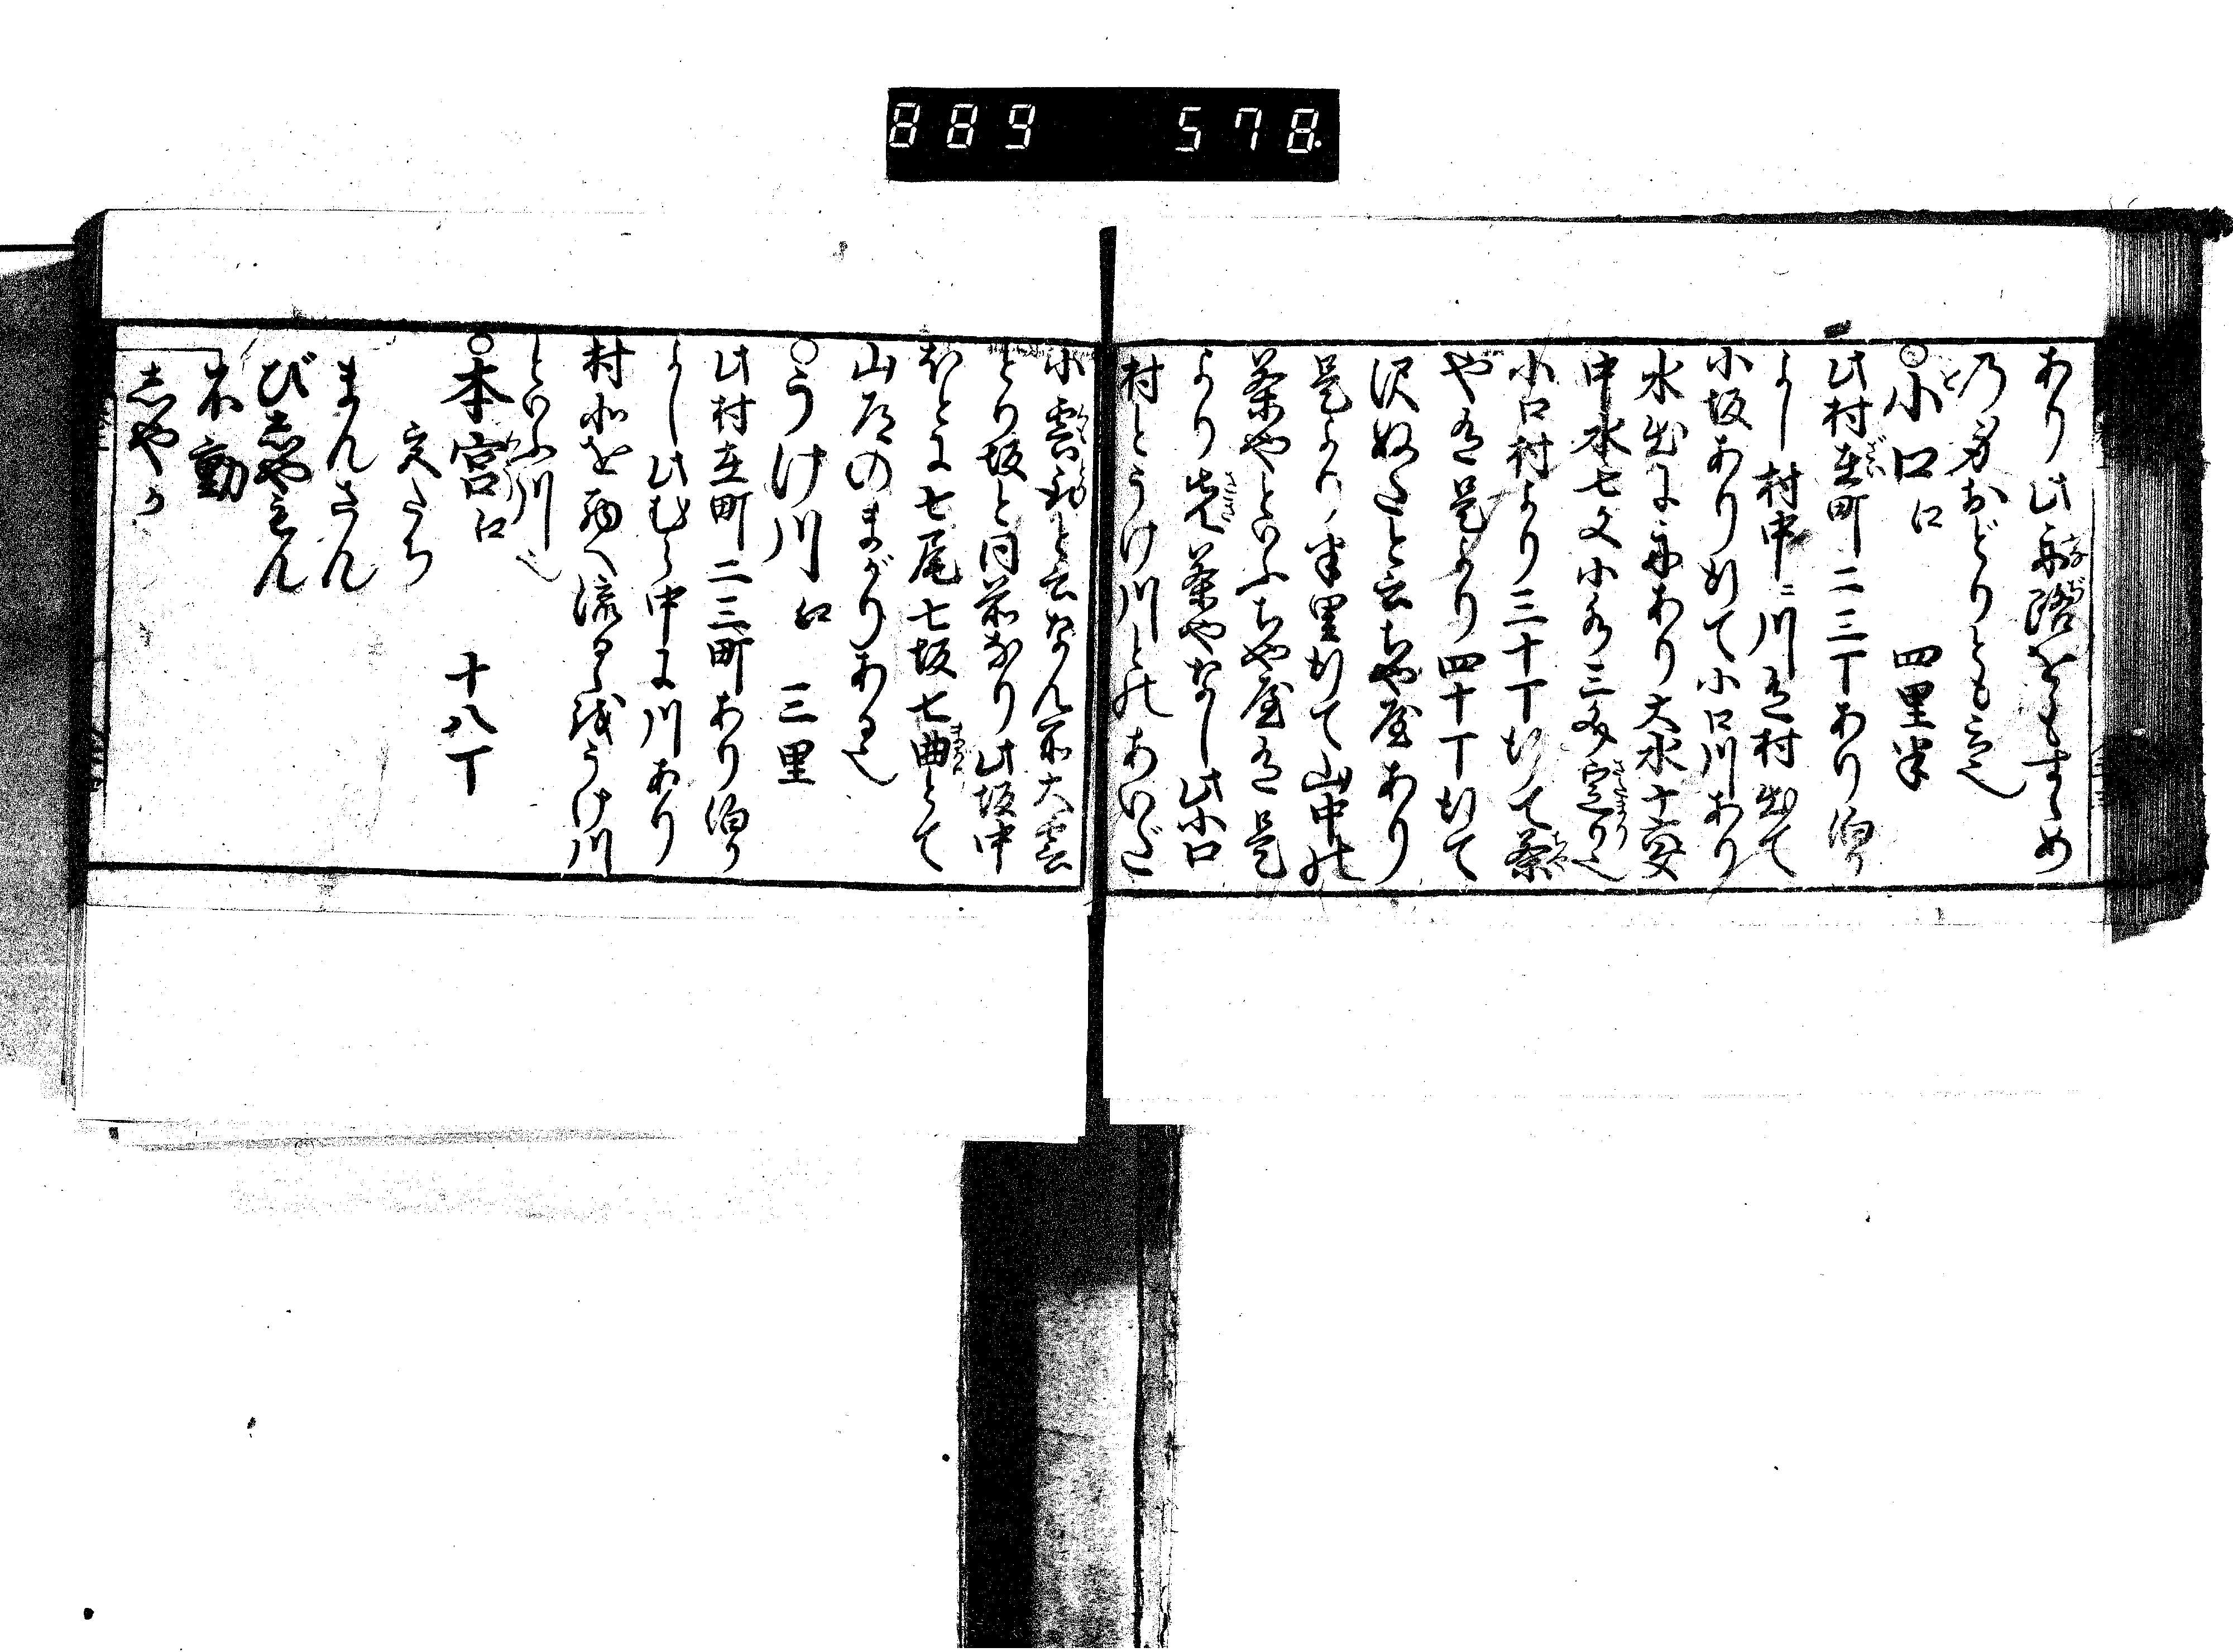 889 578
あり此舟路をもすゝめ
乃身おどりとも云也
◎小口 口 四里半
此村在町二三丁あり泊り
よし村中ニ川有村出て
小坂ありわたて小口川あり
水出に舟あり大水十安
中水七文小水三文定り也
小口村より三十丁行て茶
や有是より四十丁行て
沢ぬたと云ちや屋あり
是より半里行て山中の
茶やといふちや屋有是
より先茶やなし此小口
村とうけ川とのあいだ
小雲取と云なん所大雲
とり坂と同前なり此坂中
ほとに七尾七坂七曲とて
山道のまがりある也
○うけ川 口 三里
此村在町二三町あり泊り
よし此むら中に川あり
村水を西へ流るゝ故うけ川
といふ川也
○本宮 口 十八丁
まんさん
びしやもん
不動
しやか